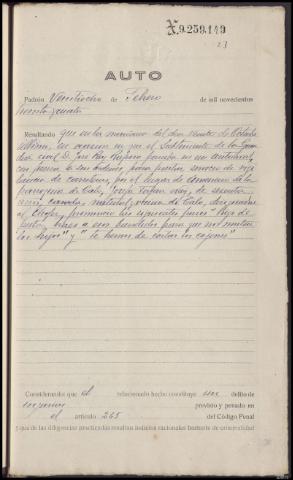 X.9.259.149
23
AUTO
Padrón Veintiocho de Febrero de mil novecientos
treinta y cuatro
Resultando que en la mañana del día veinte de Octubre
último, en ocasión en que el Sarjento de la Guar
dia civil D. José Rey pasaba en un automóvil
con fuerza de sus órdenes, para prestar servicio de vigi
lancia de carreteras, por el lugar de de la
parroquia de Calo, José de sesenta
años, casado, natural y vecino de Calo, dirigiéndose
al Chofer, pronunció las siguientes frases "Hijo de
puta, traes a esos bandidos para que nos maten
los hijos" y "te hemos de cortar los cojones"
Considerando que el relacionado hecho constituye un delito de
previsto y penado en
el artículo 265 del Código Penal
y que de las diligencias practicadas resultan indicios racionales bastante de criminalidad